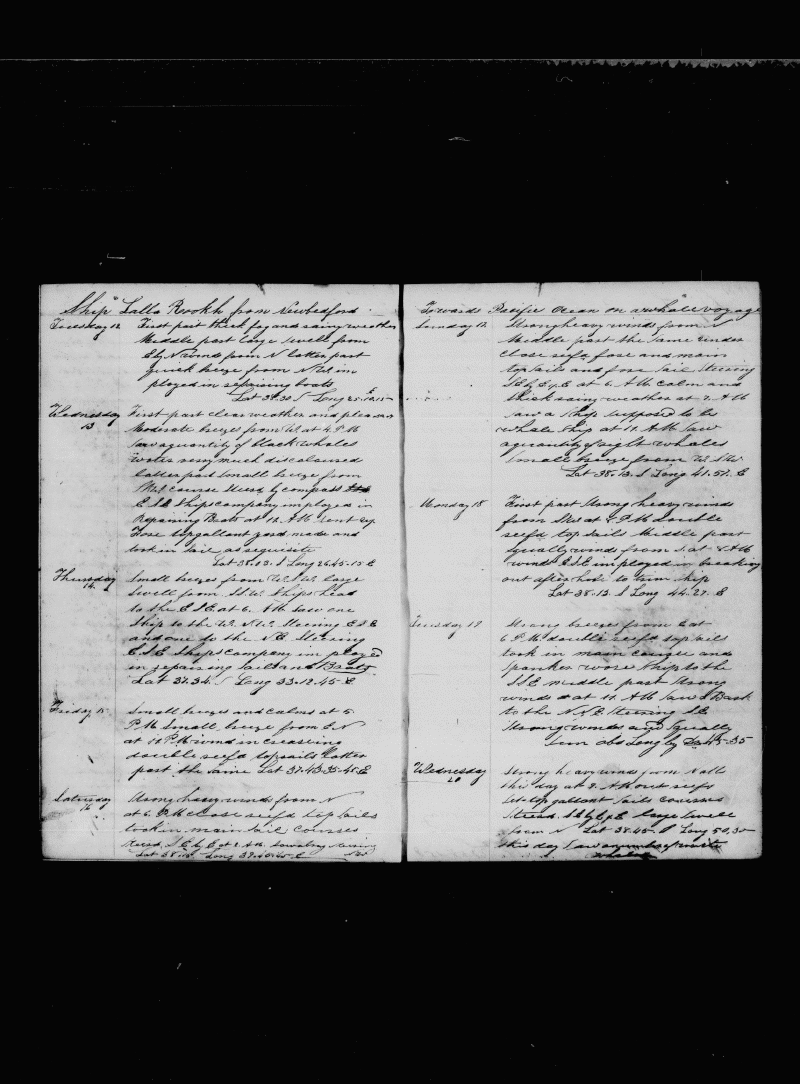 Ship "Lalla Rookh" from Newbedford
Tuesday 12 First part thick fog and rainy weather
Middle part large swells from
E by N winds from N latter part
quick breze from N im
ployed in repairing boats
Lat 37.30 S Long 25.12.15 E
Wednesday First part clear weather and pleasant
13 Moderate brezes from W. at 4 P.M
Saw a quantity of black whales
Water very much discoloured
latter part small breze from
course Steerd by compass
E S E Ships company imployed in
Repairing Boats at 12 A M sent up
Fore topgallant yard made and
took in sail as requisite
Lat 38.13 S Long 26.45.15 E
Thursday Small brezes from W.S.W. large
14 Swell from S.W. Ships head
to the E S E at 6 A M Saw one
Ship to the W. Steering E S E
and one to the N.E. Steering
E.S.E Ships company imployed
in repairing sails and Boats
Lat 37.34 S Long 33.12.45 E
Friday 15 Small brezes and calms at 5
P.M Small breze from E.N
at 11 P.M wind increasing
double reef'd topsails latter
part the same Lat 37.43 35.45 E
Saturday Strong heavy winds from N
16 at 6 P.M close reef'd top sails
took in main sail courses
Steerd S E by E at 2 A.M
Lat 38.13 Long 39.10.45 E
Towards Pacific Ocean on a whale voyage
Sunday 17 Strong heavy winds from N
Middle part the Same under
close reefs fore and main
top sails and fore sail Steering
S E by E at 6 A M calm and
thick rainy weather at 7 A M
saw a Ship supposed to be
whale ship at 11 A M Saw
a quantity of right whales
Small breze from W.S.W.
Lat 38.13 S Long 41.57 E
Monday 18 First part Strong heavy winds
from at 8 P M double
reef'd top sails Middle part
squally winds from S. at 4 A M
winds E S E imployed in breaking
out after hole to trim Ship
Lat 38.13 S Long 44.27 E
Tuesday 19 Strong brezes from E at
6 P.M double reef'd top sails
took in main course and
spanker wore Ship to the
S S E middle part Strong
winds at 11 A M Saw a Bark
to the N & E Steering S E
Strong winds and Squally
Sun obs Long by 45.35
Wednesday Strong heavy winds from N all
20 this day at 2 A M out reefs
set top gallant sails courses
Steerd S E by E large Swell
from N Lat 38.45 S Long 50.30
this day Saw a number of
whales